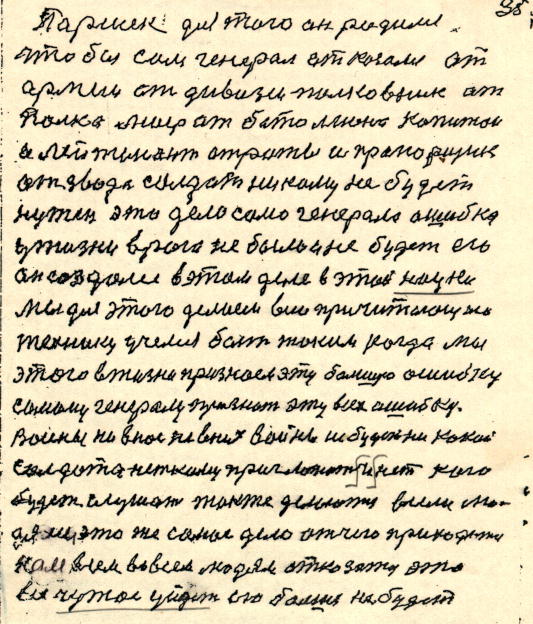 35
Паршек для того он родился
что бы сам генерал отказался от
армии от дивизи полковник от
Полка от батолиона Капитан
а лейтенант от роты и прапорщик
от звода солдат никому не будет
нужен это дело само генерала ошибка
у жизни врага не было и не будет его
он создался в этом деле в этой науки
Мы для этого делаем
технику учелись быть таким когда мы
этого в жизни признаем эту большую ошибку
самому генералу признать эту всех ошибку.
Воины на вное не будет ни какой
солдата нет кому и нет кого
будет слушат также делются всеми лю-
это же самое дело отчего приходится
нам всем во всем людям отказатся это
все чужое уйдет его больше не будет